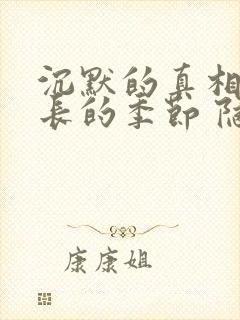 沉默的真相
長的季節
康康姐